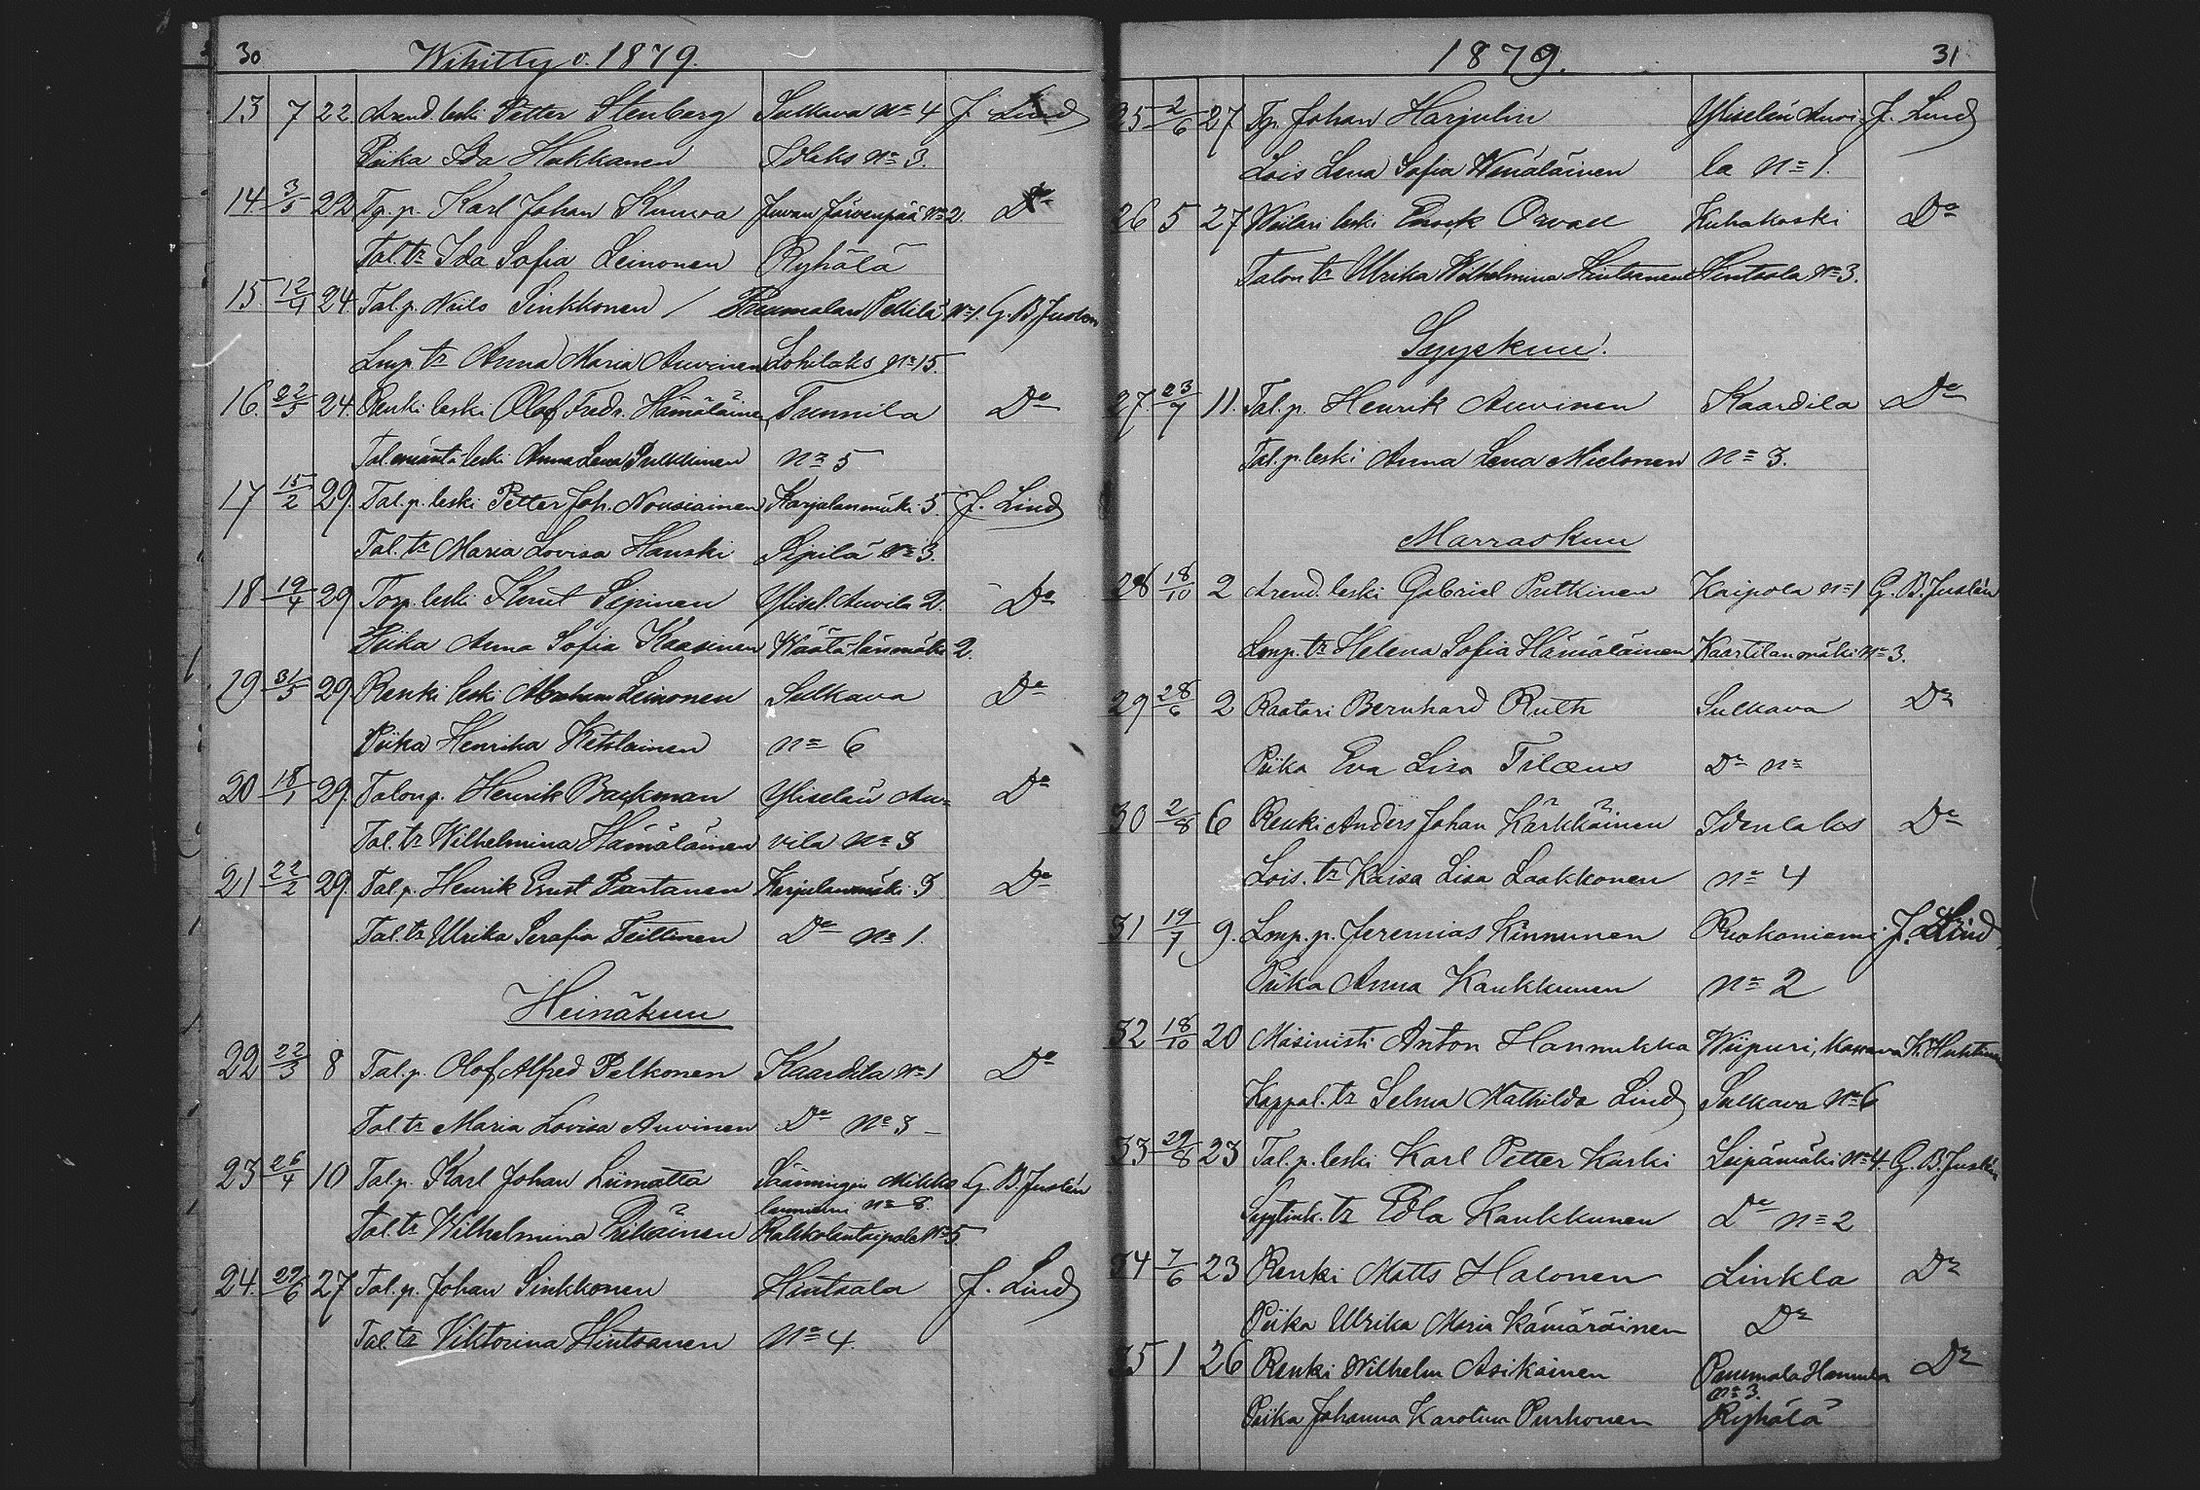 30 Wihitty v. 1879.
13 7 22 Arend. leski Petter Stenberg Sulkava No 4 J. Lind
Piika Ida Hukkanen Idlaks No 3.
14 3/5 22 Tp. p. Karl Johan Kuuva Juvan Järvenpää No 2 Do
Tal. tr Ida Sofia Leinonen Ryhälä
15. 12/4 24. Tal. p. Niilo Sinkkonen / Puumalan Pellilä No 1. G. B. Juslén
Lmp. tr Anna Maria Auvinen Lohilaks No 15.
16. 22/3 24. Renki leski Olof Fredr. Hämäläinen Tunnila Do
Tal. emäntä leski Anna Lena Pulkkinen No 5
17 15/2 29. Tal. p. leski Petter Joh. Nousiainen Karjalanmäki 5. J. Lind
Tal. tr Maria Lovisa Hauski Pipilä No 3.
18 19/4 29 Torp. leski Knut Sipinen Ylisel. Auvila 2. Do
Piika Anna Sofia Kaasinen Wäätälänmäki 2.
19 31/5 29. Renki leski Abraham Leinonen Sulkava Do
Piika Henrika Ketolainen No 6
20 18/1 29. Talon p. Henrik Backman Yliselän Au= Do
Tal. tr Wilhelmina Hämäläinen vila No 3
21 22/2 29. Tal. p. Henrik Ernst Partanen Karjalanmäki 3 Do
Tal. tr Ulrika Serafia Teittinen Do No 1.
Heinäkuu
22 22/3 8 Tal. p. Olof Alfred Pelkonen Kaartila No 1 Do
Tal. tr Maria Lovisa Auvinen Do No 3
23 26/4 10 Tal. p. Karl Johan Liimatta Säämingin Mikko G. B. Juslén
lanniemi No 8.
Tal. tr Wilhelmina Asikainen Kalkolantaipale No 5.
24. 29/6 27 Tal. p. Johan Sinkkonen Hintsala J. Lind
Tal. tr Viktorina Hintsanen No 4.
1879. 31
25 2/6 27 Tp. Johan Harjulin Yliselän Auvi J. Lind
Lois Lena Sofia Wenäläinen la No 1.
26 5 27 Wälari leski Enock Orvall Kuhakoski Do
Talon tr Ulrika Wilhelmina Hintsanen Hintsala No 3.
Syyskuu.
27. 23/7 11. Tal. p. Henrik Auvinen Kaardila Do
Tal. p. leski Anna Lena Mielonen No 3.
Marraskuu
28 18/10 2 Arend. leski Gabriel Putkinen Kaipola No 1 G. B. Juslén
Lmp. tr Helena Sofia Hämäläinen Kaartilanmäki No 3.
29 28/6 2 Raatari Bernhard Ruth Sulkava Do
Piika Eva Lisa Tilæus Do No
30 2/8 6 Renki Anders Johan Kärkkäinen Idenlaks Do
Lois. tr Kaisa Lisa Laakkonen No 4
31 19/7 9. Lmp. p. Jeremias Kinnunen Ruokoniemi J. Lind
Piika Anna Kaukkunen No 2
32 18/10 20 Masinisti Anton Hannukka Wiipuri,
Kappal. tr Selma Mathilda Lind Sulkava No 6
33 29/8 23 Tal. p. leski Karl Petter Kurki Leipämäki No 4. G. B. Juslén
Syytink. tr Edla Kaukkunen Do No 2
34 7/6 23 Renki Matts Halonen Linkla Do
Piika Ulrika Maria Kämäräinen Do
35 1 26 Renki Wilhelm Asikainen Puumala Hannula Do
No 3.
Piika Johanna Karolina Purhonen Ryhälä